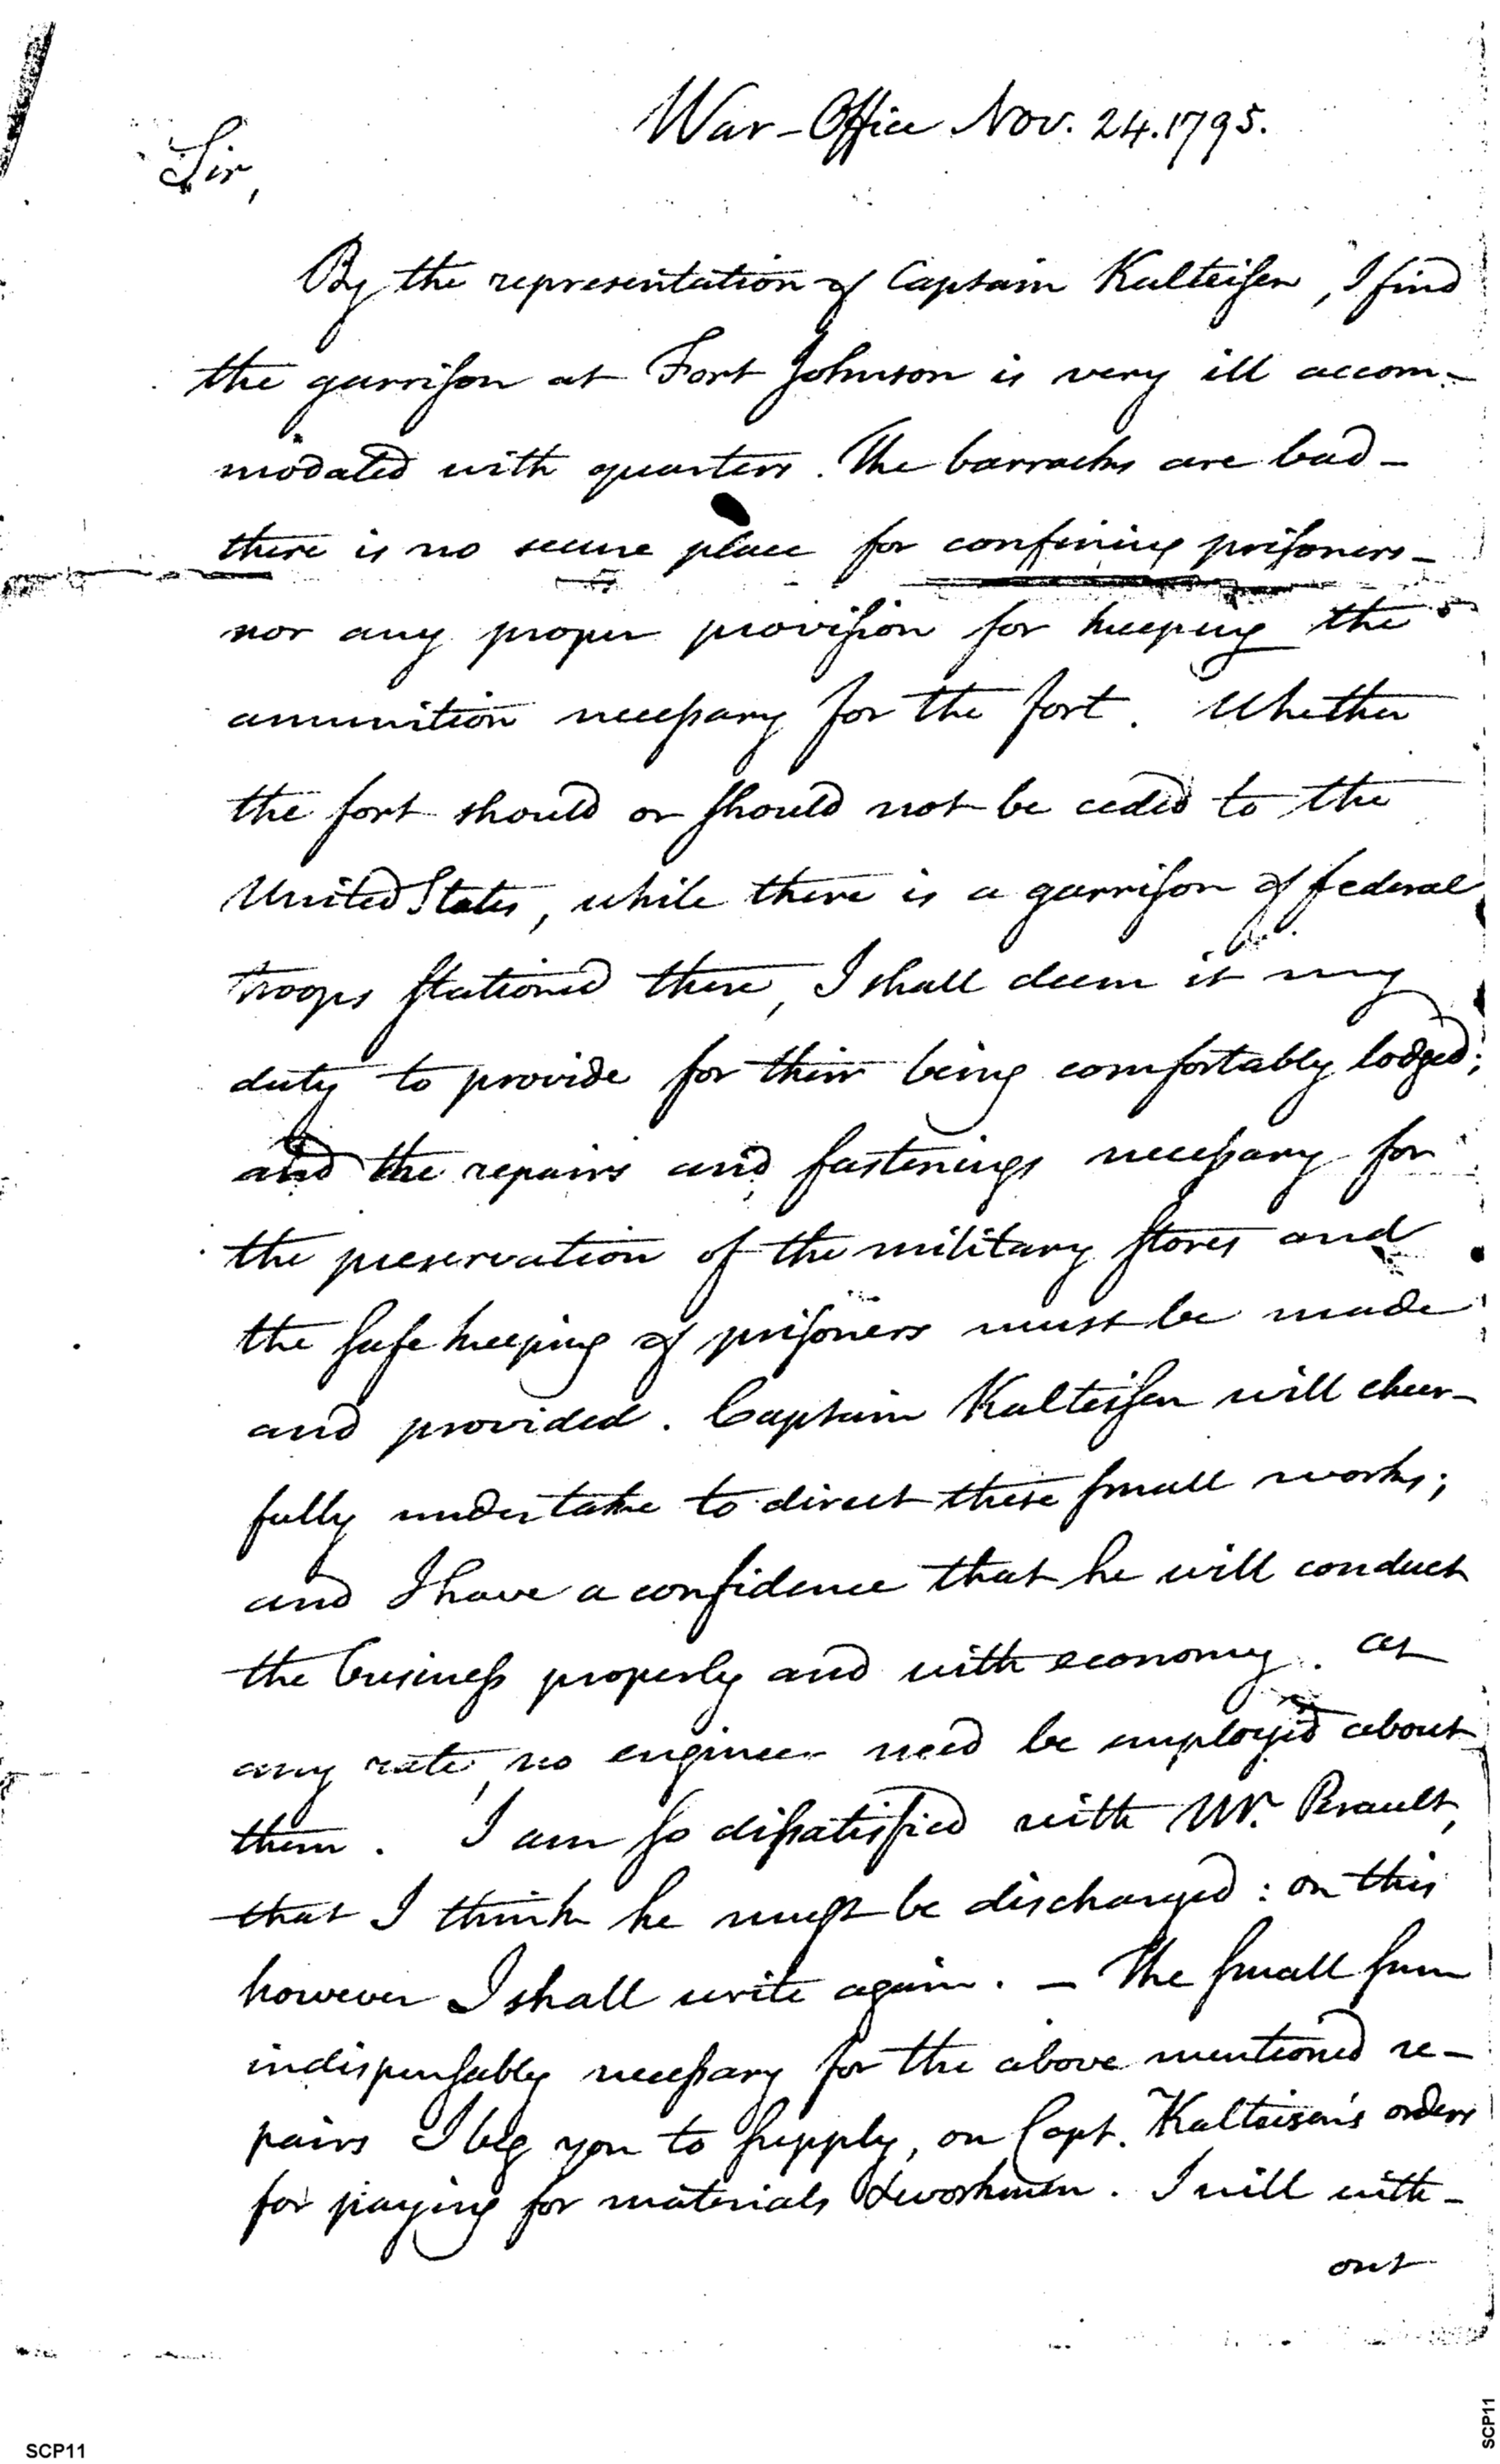 War-Office Nov. 24. 1795.
Sir,
By the representation of Captain Kalteisen, I find
the garrison at Fort Johnson is very ill accom-
modated with quarters. The barracks are bad-
there is no secure place for confining prisoners-
nor any proper provision for keeping the
ammunition necessary for the fort. Whether
the fort should or should not be ceded to the
United States, while there is a garrison of federal
troops stationed there, I shall deem it my
duty to provide for their being comfortably lodged;
and the repairs and fastenings necessary for
the preservation of the military stores and
the safe keeping of prisoners must be made
and provided. Captain Kalteisen will cheer-
fully undertake to direct these small works;
and I have a confidence that he will conduct
the business properly and with economy. At
any rate, no engineer need be employed about
them. I am so dissatisfied with Mr. Perault,
that I think he must be discharged: on this
however I shall write again. - The small sum
indispensably necessary for the above mentioned re-
pairs I beg you to supply, on Capt. Kalteisen's orders
for paying for materials & workmen. I will with-
out
SCP11
SCP11